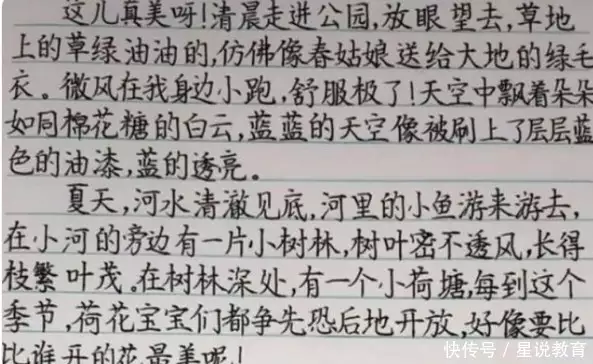 这儿真美呀！清晨走进公园，放眼望去，草地
上的草绿油油的，仿佛像春姑娘送给大地的绿毛
衣。微风在我身边小跑，舒服极了！天空中飘着朵朵
如同棉花糖的白云，蓝蓝的天空像被刷上了层层蓝
色的油漆，蓝的透亮。
夏天，河水清澈见底，河里的小鱼游来游去，
在小河的旁边有一片小树林，树叶密不透风，长得
枝繁叶茂。在树林深处，有一个小荷塘，每到这个
季节，荷花宝宝们都争先恐后地开放，好像要比
比谁开的花最美呢！
快传号／星说教育